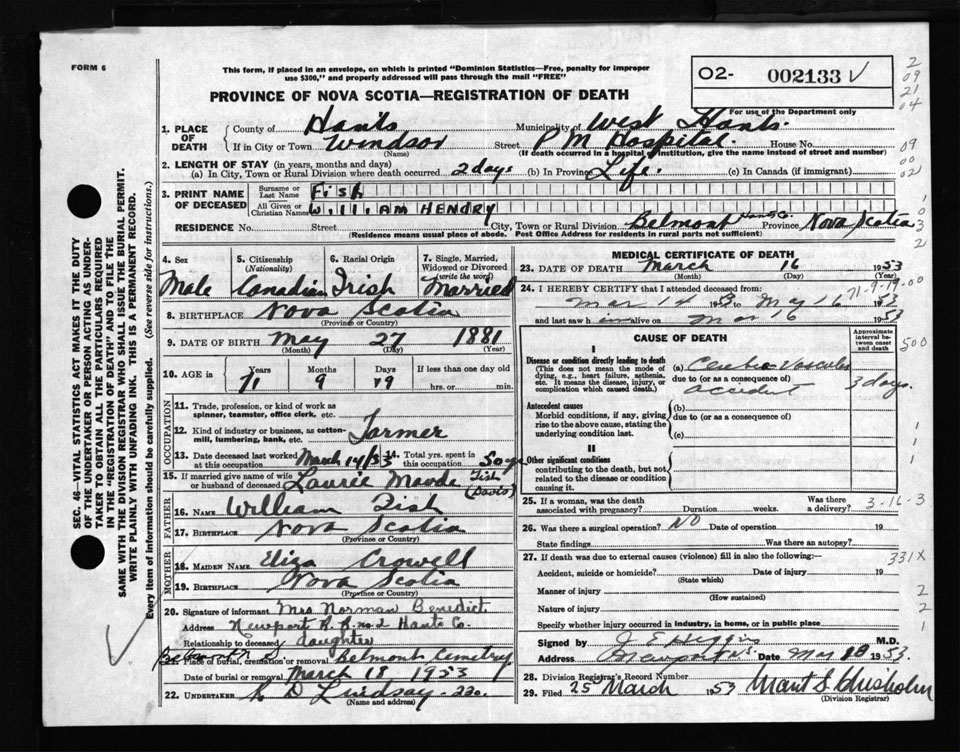 FORM 6
This form, if placed in an envelope, on which is printed "Dominion Statistics—Free, penalty for improper
use $300," and properly addressed will pass through the mail "FREE"
PROVINCE OF NOVA SCOTIA—REGISTRATION OF DEATH
02- 002133 V
For use of the Department only
2
09
21
04
1. PLACE OF DEATH
County of Hants Municipality of West Hants.
If in City or Town Windsor Street P M Hospital. House No.
(Name) (If death occurred in a hospital or institution, give the name instead of street and number)
09
00
02
2. LENGTH OF STAY (in years, months and days)
(a) In City, Town or Rural Division where death occurred 2 days (b) In Province Life. (c) In Canada (if immigrant)
3. PRINT NAME OF DECEASED
Surname or Last Name Fish
All Given or Christian Names WILLIAM HENDRY
RESIDENCE No. Street City, Town or Rural Division Belmont Hants Co. Province Nova Scotia
(Residence means usual place of abode. Post Office Address for residents in rural parts not sufficient)
SEC. 46—VITAL STATISTICS ACT MAKES IT THE DUTY
OF THE UNDERTAKER OR PERSON ACTING AS UNDER-
TAKER TO OBTAIN ALL THE PARTICULARS REQUIRED
IN THE "REGISTRATION OF DEATH" AND TO FILE THE
SAME WITH THE DIVISION REGISTRAR WHO SHALL ISSUE THE BURIAL PERMIT.
WRITE PLAINLY WITH UNFADING INK. THIS IS A PERMANENT RECORD.
Every item of information should be carefully supplied. (See reverse side for instructions.)
4. Sex
Male
5. Citizenship
(Nationality)
Canadian
6. Racial Origin
Irish
7. Single, Married,
Widowed or Divorced
(write the word)
Married
8. BIRTHPLACE Nova Scotia
(Province or Country)
9. DATE OF BIRTH May 27 1881
(Month) (Day) (Year)
10. AGE in
Years Months Days If less than one day old
71 9 19 hrs. or min.
OCCUPATION
11. Trade, profession, or kind of work as
spinner, teamster, office clerk, etc.
12. Kind of industry or business, as cotton-
mill, lumbering, bank, etc. Farmer
13. Date deceased last worked
at this occupation March 14/53
14. Total yrs. spent in
this occupation 50 yr
15. If married give name of wife
or husband of deceased Laurie Maude Fish
(Davis)
FATHER
16. Name William Fish
17. Birthplace Nova Scotia
(Province or Country)
MOTHER
18. MAIDEN NAME Eliza Crowell
19. BIRTHPLACE Nova Scotia
(Province or Country)
20. Signature of informant Mrs Norman Benedict
Address Newport R.R. no 2 Hants Co.
Relationship to deceased daughter
21. Place of burial, cremation or removal Belmont Cemetery
Date of burial or removal March 18 1953
22. UNDERTAKER K D Lindsay
(Name and address)
MEDICAL CERTIFICATE OF DEATH
23. DATE OF DEATH March 16 1953
(Month) (Day) (Year)
71-9-19-00
24. I HEREBY CERTIFY that I attended deceased from:
Mar 14 1953 to Mar 16 1953
and last saw him alive on Mar 16 1953
CAUSE OF DEATH
Approximate
interval be-
tween onset
and death
500
I
Disease or condition directly leading to death
(This does not mean the mode of
dying, e.g., heart failure, asthenia,
etc. It means the disease, injury, or
complication which caused death.)
(a) Cerebro Vascular
due to (or as a consequence of)
accident
3 days.
Antecedent causes
Morbid conditions, if any, giving
rise to the above cause, stating the
underlying condition last.
(b)
due to (or as a consequence of)
(c)
II
Other significant conditions
contributing to the death, but not
related to the disease or condition
causing it.
25. If a woman, was the death
associated with pregnancy? Duration weeks. Was there
a delivery?
3-16-3
26. Was there a surgical operation? NO Date of operation 19
State findings Was there an autopsy?
27. If death was due to external causes (violence) fill in also the following:—
331X
Accident, suicide or homicide? Date of injury 19
(State which)
Manner of injury
(How sustained)
2
Nature of injury
2
Specify whether injury occurred in industry, in home, or in public place
1
Signed by J E Higgins M.D.
Address Newport N.S. Date Mar 18 1953.
28. Division Registrar's Record Number
29. Filed 25 March 1953 Grant S. Chisholm
(Division Registrar)